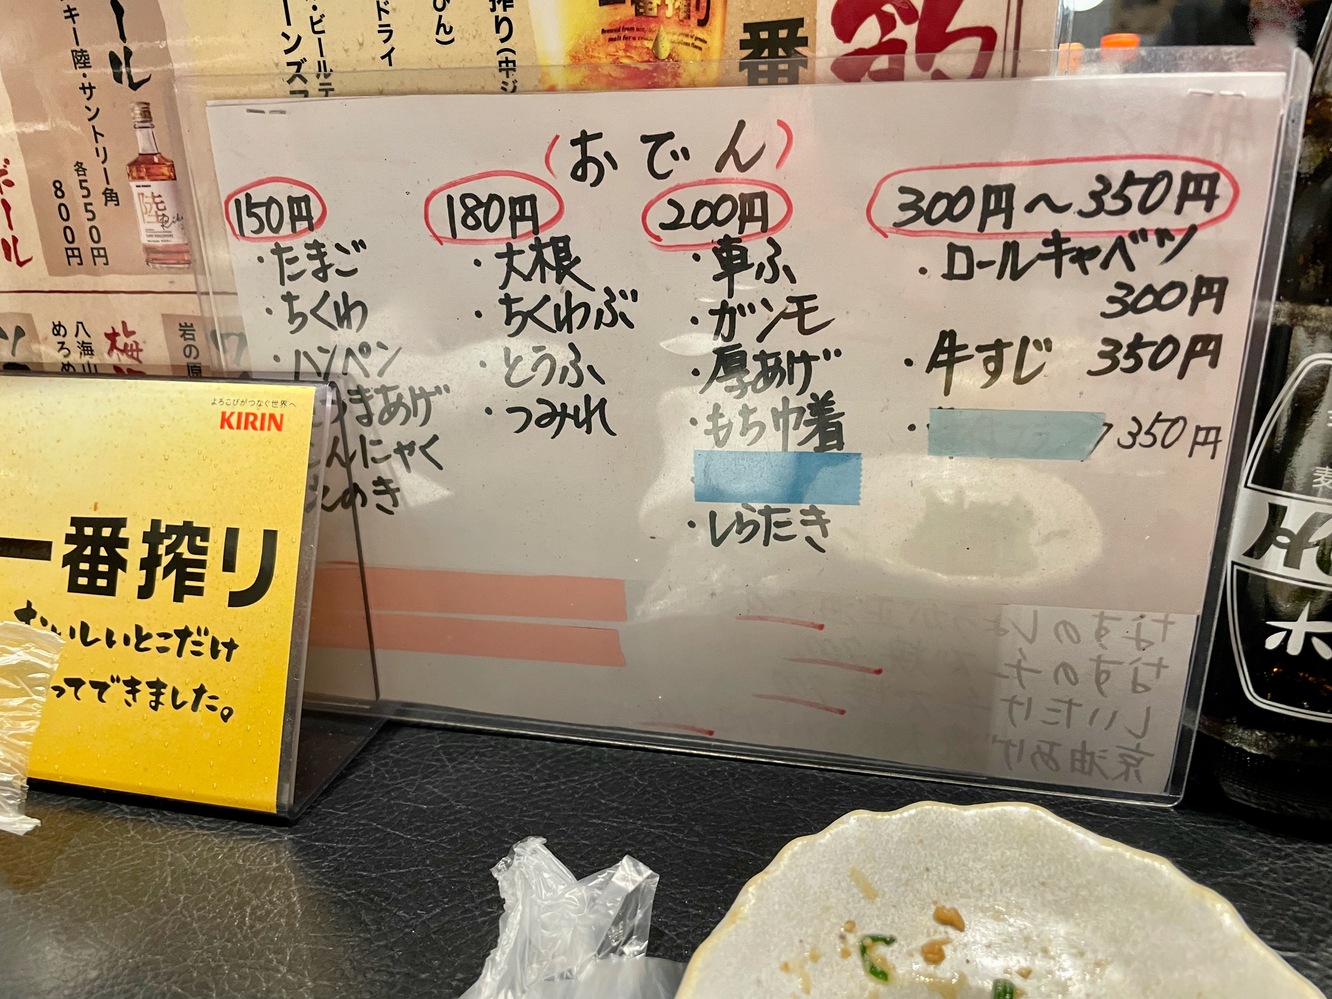 (おでん)
150円
・たまご
・ちくわ
・ハンペン
つまあげ
こんにゃく
えのき
180円
・大根
・ちくわぶ
・とうふ
・つみれ
200円
・車ふ
・ガンモ
・厚あげ
・もち巾着
・しらたき
300円～350円
・ロールキャベツ
300円
・牛すじ 350円
・ 350円
なすのしょうが
なすのチ
しいたけ
京油あげ
よろこびがつなぐ世界へ
KIRIN
一番搾り
おいしいとこだけ
ってできました。
キー陸・サントリー角
各550円
800円
陸
ドライ
搾り(中ジ
一番搾り
番
八海山
めろめ
梅
岩の原
ホ